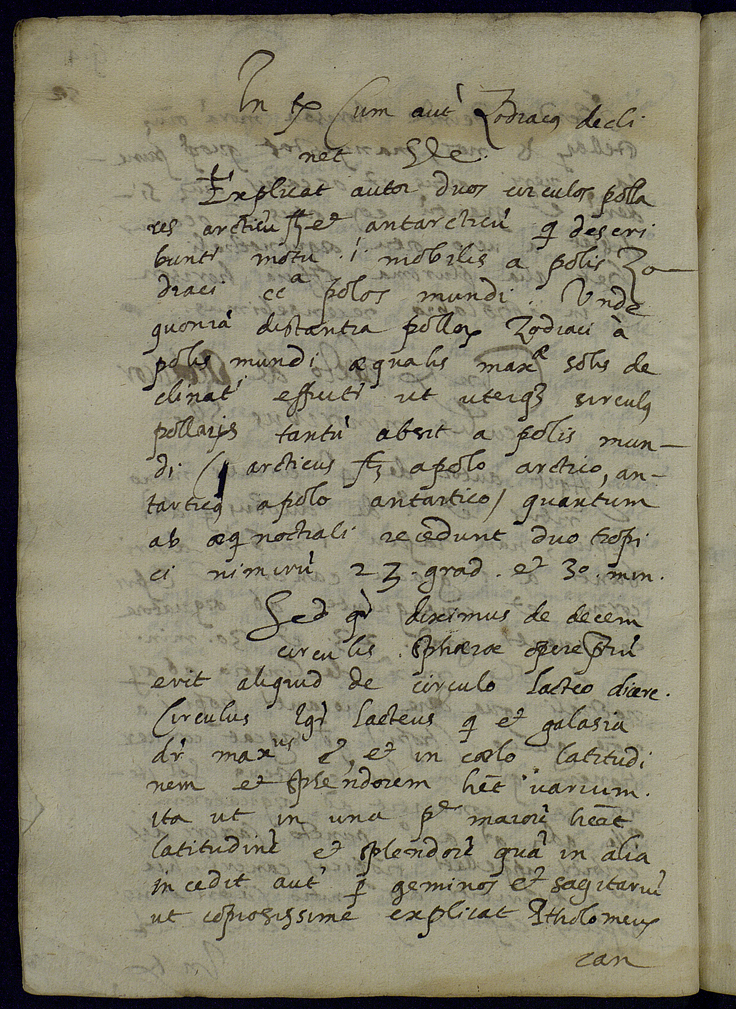 In tx Cum aut' Zodiacus decli
net &c.
Explicat autor duos circulos polla
res arcticũ scz et antarcticũ q̃ descri
buntr motu .i. mobilis a polis Zo
diaci cca polos mundi. Unde
quoniã distantia pollor Zodiaci à
polis mundi æqualis maxæ solis de
clinati efficitr ut uterq3 circulus
pollaris tantũ absit a polis mun-
di (arcticus scz a polo arctico, an-
tarticus a polo antartico) quantum
ab æq̃noctiali recedunt duo tropi
ci nimirũ 23. grad. et 30. min.
Sed q̃ diximus de decem
circulis sphæræ opere ptiũ
erit aliquid de circulo lacteo dicere.
Circulus igr lacteus q̃ et galasia
dr maxus ẽ, et in cœlo latitudi
nem et splendorem hẽt uarium.
ita ut in una pte maiorẽ hẽat
latitudinẽ et splendorẽ quã in alia
incedit aut' p geminos et sagitariũ
ut copiosissime explicat Ptholomeus
can